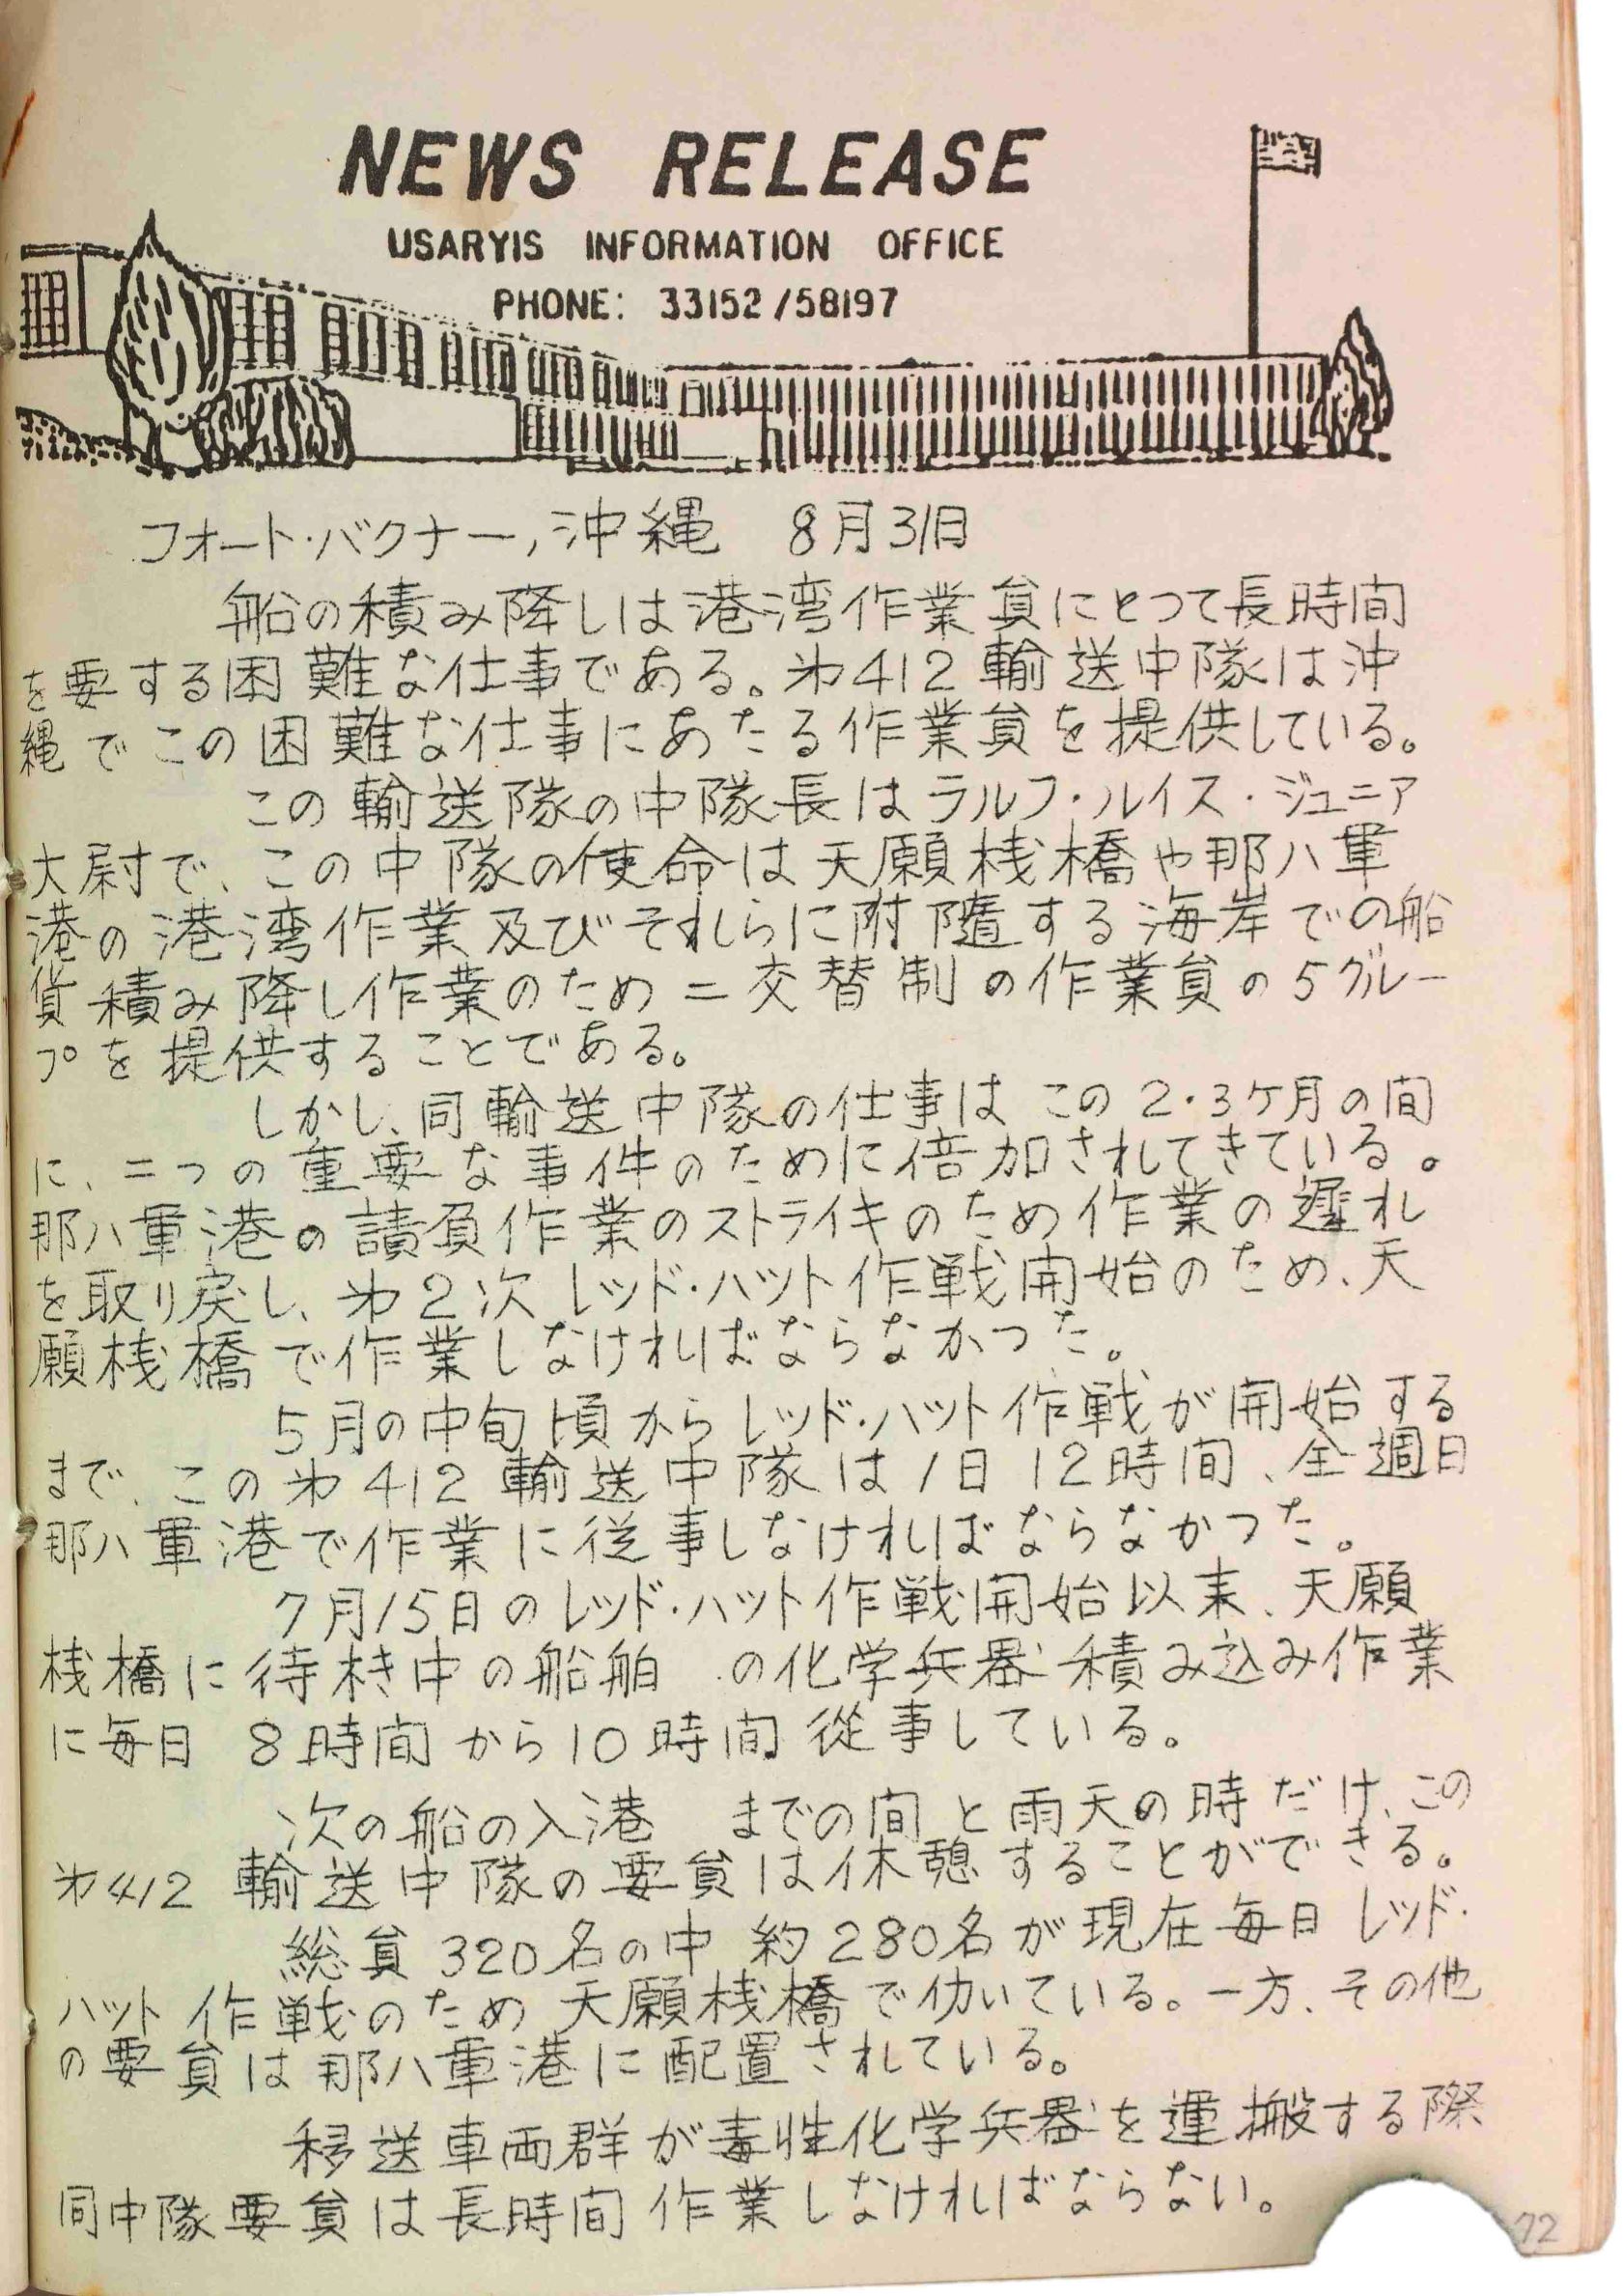 NEWS RELEASE
USARYIS INFORMATION OFFICE
PHONE: 33152/58197
フォート・バクナー,沖縄 8月31日
船の積み降しは港湾作業員にとって長時間
を要する困難な仕事である。第412輸送中隊は沖
縄でこの困難な仕事にあたる作業員を提供している。
この輸送隊の中隊長はラルフ・ルイス・ジュニア
大尉で、この中隊の使命は天願桟橋や那ハ軍
港の港湾作業及びそれらに附随する海岸での船
貨積み降し作業のため二交替制の作業員の5グルー
プを提供することである。
しかし、同輸送中隊の仕事はこの2・3ヶ月の間
に、二つの重要な事件のために倍加されてきている。
那ハ軍港の請負作業のストライキのため作業の遅れ
を取り戻し、第2次レッド・ハット作戦開始のため、天
願桟橋で作業しなければならなかった。
5月の中旬頃からレッド・ハット作戦が開始する
まで、この第412輸送中隊は1日12時間、全週日
那ハ軍港で作業に従事しなければならなかった。
7月15日のレッド・ハット作戦開始以来、天願
桟橋に待機中の船舶 の化学兵器積み込み作業
に毎日 8時間から10時間 従事している。
次の船の入港 までの間と雨天の時だけ、この
第412 輸送中隊の要員は休憩することができる。
総員 320名の中 約280名が現在毎日レッド・
ハット作戦のため天願桟橋で働いている。一方、その他
の要員は那ハ軍港に配置されている。
移送車両群が毒性化学兵器を運搬する際
同中隊要員は長時間作業しなければならない。
72